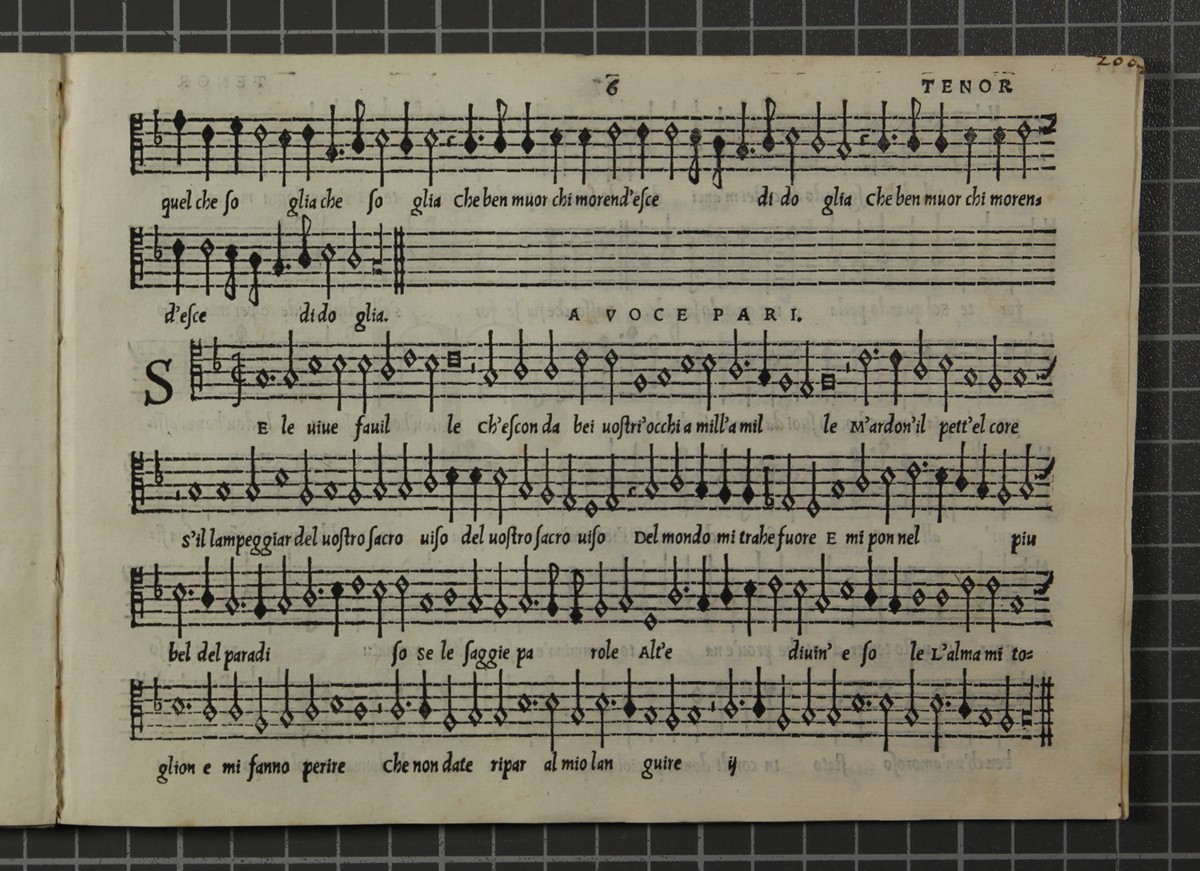 200
6 TENOR
quel che ſo glia che ſo glia Che ben muor chi morend'eſce di do glia Che ben muor chi moren=
d'eſce di do glia. A VOCE PARI.
SE le uiue fauil le Ch'eſcon da bei uoſtri'occhi a mill'a mil le M'ardon'il pett'el core
S'il lampeggiar del uoſtro ſacro uiſo del uoſtro ſacro uiſo Del mondo mi trahe fuore E mi pon nel piu
bel del paradi ſo Se le ſaggie pa role Alt'e diuin' e ſo le L'alma mi to=
glion e mi fanno perire Che non date ripar al mio lan guire ij